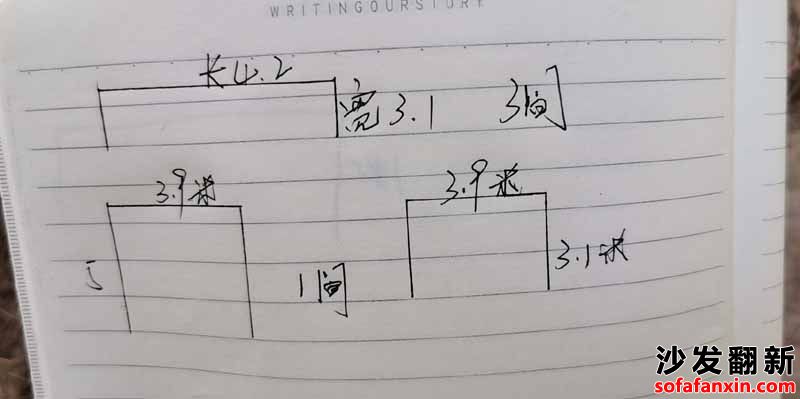 WRITINGOURSTORY
长4.2
宽3.1 3间
3.9米 3.9米
5 1间 3.1米
沙发翻新
sofafanxin.com